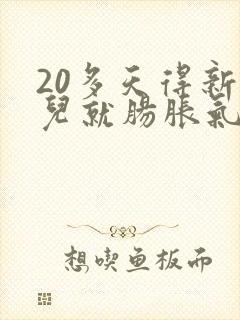 20多天得新
兒就腸脹氣
想喫鱼板面